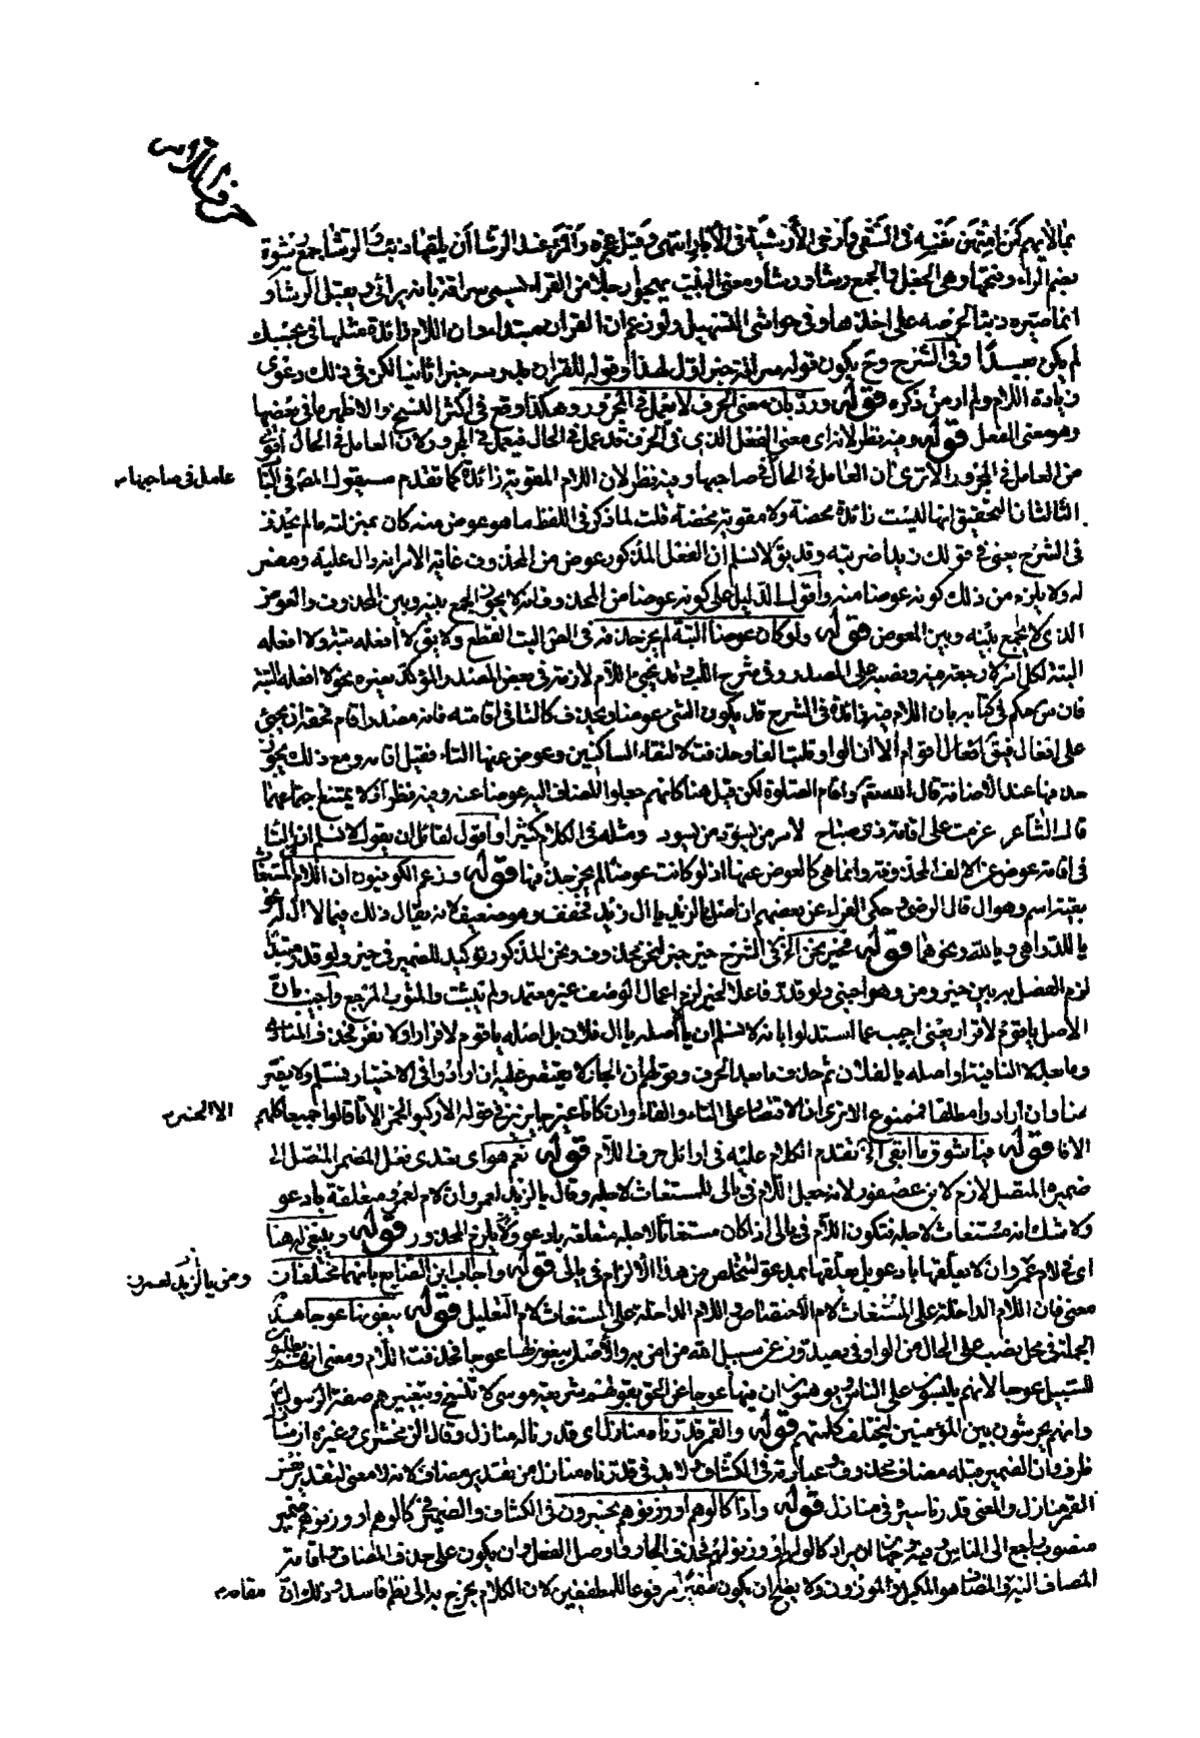 بضم الراء وفتحها وهي الحبل والجمع رشا ورشا ومعنى البيت يهجو رجلا من القراء يسمى سراقة بأنه يرائي ويقبل الرشا و
انما صيره ذئبا لحرصه على اخذها وفي حواشي التسهيل ولو زعم ان القرآن مبتدا وان اللام زائدة مثلها في بحسبك
لم يكن بعيدا وفي الشرح وح يكون قوله سراقة خبر اول لهذا وقوله للقرآن يدرسه خبرا ثانيا لكن في ذلك دعوى
زيادة اللام ولم ار من ذكره قوله ورد بان معنى الحرف لا يعمل في المجرور وهكذا وقع في اكثر النسخ والاظهر ما في بعضها
وهو معنى الفعل قوله وفيه نظر لانه اي معنى الفعل الذي في الحرف قد عمل في الحال فيعمل في المجرور لان العامل في الحال اقوى
من العامل في المجرور الا ترى ان العامل في الحال في صاحبها وفيه نظر لان اللام المقوية زائدة كما تقدم سيقول المص في الباب
عامل في صاحبها
الثالث ان التحقيق انها ليست زائدة محضة ولا مقوية محضة قلت لما ذكر في اللفظ ما هو عوض منه كان بمنزلته ما لم يحذف
في الشرح يعني في قولك زيدا ضربته وقد يق لا نسلم ان الفعل المذكور عوض من المحذوف غاية الامر انه دال عليه ومفسر
له ولا يلزم من ذلك كونه عوضا منه واقول الدليل على كونه عوضا من المحذوف انه لا يجوز الجمع بينه وبين المحذوف والعوض
الذي لا يجمع بينه وبين المعوض قوله ولو كان عوضا البتة لم يجز حذفه في الص البت القطع ولا يق لا افعله بتة ولا افعله
البتة لكل امر لا رجعة فيه ونصبه على المصدر وفي شرح اللب وقد تجيء اللام لازمة في بعض المصدر المؤكد بغيره نحو لا افعله البتة
على افعال فيق افعال اقوام الا ان الواو قلبت الفا وحذفت لالتقاء الساكنين وعوض عنها التاء فقيل اقامة ومع ذلك يجوز
حذفها عند الاضافة قال الله تعم واقام الصلوة لكن قيل هنا كانهم جعلوا المضاف اليه عوضا عنه وفيه نظر اذ لا يمتنع اجتماعهما
قال الشاعر عزمت على اقامة ذي صباح لامر ما يسود من يسود ومثله في الكلام كثير او اقول لقائل ان يقول لا نسلم ان التا
في اقامة عوض عن الالف المحذوفة وانما هي كالعوض عنها اذ لو كانت عوضا لم يجز حذفها قوله وزعم الكوفيون ان اللام في المستغاث
بقية اسم وهو ال قال الرضي وحكى الفراء عن بعضهم ان اصل يا لزيد يا آل زيد فخفف وهو ضعيف لانه يقال ذلك فيما لا آل له نحو
يا للدواهي ويا لله ونحوهما قوله فخير نحن الخ في الشرح خير خبر لنحن محذوف ونحن المذكور توكيد للضمير في خير ولو قدر مبتدا
لزم الفصل به بين خير ومن وهو اجنبي ولو قدر فاعلا لخير لزم اعمال الوصف غير معتمد ولم يثبت والمثوب المرجع واجيب بان
الاصل يا قوم لا فرار يعني اجيب عما استدلوا بانه لا نسلم ان يا اصله يا آل فلان بل اصله يا قوم لا فرار او لا نفر فحذف المنادى
وما بعد لا النافية او اصله يا لفلان ثم حذف ما بعد الحرف وقولهم ان الجار لا يقتصر عليه ان ارادوا في الاختيار فمسلم ولا يضر
هنا وان ارادوا مطلقا فممنوع الا ترى ان الاقتصار على التاء والفاء وان كانا غير جايزين في قوله الا اركبوا الجز الا تا قالوا جميعا كلهم
الا فا قوله فيا شوق ما ابقى الخ تقدم الكلام عليه في اوائل حرف اللام قوله نعم هو اي تعدى فعل المضمر المتصل الى
ضميره المتصل لازم لابن عصفور لانه جعل اللام في يا لي للمستغاث لاجله وقال يا لزيد لعمرو ان لام لعمرو متعلقة بادعو
ولا شك انه مستغاث لاجله فتكون اللام في يا لي اذا كان مستغاثا لاجله متعلقة بادعو ويلزم المحذور قوله وينبغي له هنا
اي في لام لعمرو ان لا يعلقها بادعو بل يعلقها بمدعو لتخلص من هذا الالزام في يا لي قوله واجاب ابن الصايغ بانهما مختلفان
ومن يا لزيد لعمرو
معنى فان اللام الداخلة على المستغاث لام الاختصاص واللام الداخلة على المستغاث لام التعليل قوله يبغونها عوجا هذه
الجملة في محل نصب على الحال من الواو في يصدون عن سبيل الله من امن به والاصل يبغون لها عوجا فحذفت اللام ومعنى
للسبيل عوجا لانهم يلبسون على الناس ويوهمون ان فيها عوجا عن الحق بقولهم شريعة موسى لا تنسخ وبتغييرهم صفة الرسول
وانهم يحرشون بين المؤمنين لتختلف كلمتهم قوله والقمر قدرناه منازل اي قدرنا له منازل وقال الزمخشري وغيره
ظرف وان الضمير قبله مضاف محذوف وعبارته في الكشاف ولا بد في قدرناه منازل من تقدير مضاف لانه لا معنى لتقدير نفس
القمر منازل والمعنى قدرنا سيره في منازل قوله واذا كالوهم او وزنوهم يخسرون في الكشاف والضمير في كالوهم او وزنوهم ضمير
منصوب راجع الى الناس وفيه وجهان ان يراد كالوا لهم او وزنوا لهم فحذف الجار واوصل الفعل وان يكون على حذف المضاف واقامة
المضاف اليه والمضاف هو المكيل والموزون ولا يصح ان يكون ضميرا مرفوعا للمطففين لان الكلام يخرج به الى نظم فاسد وذلك ان
مقامه